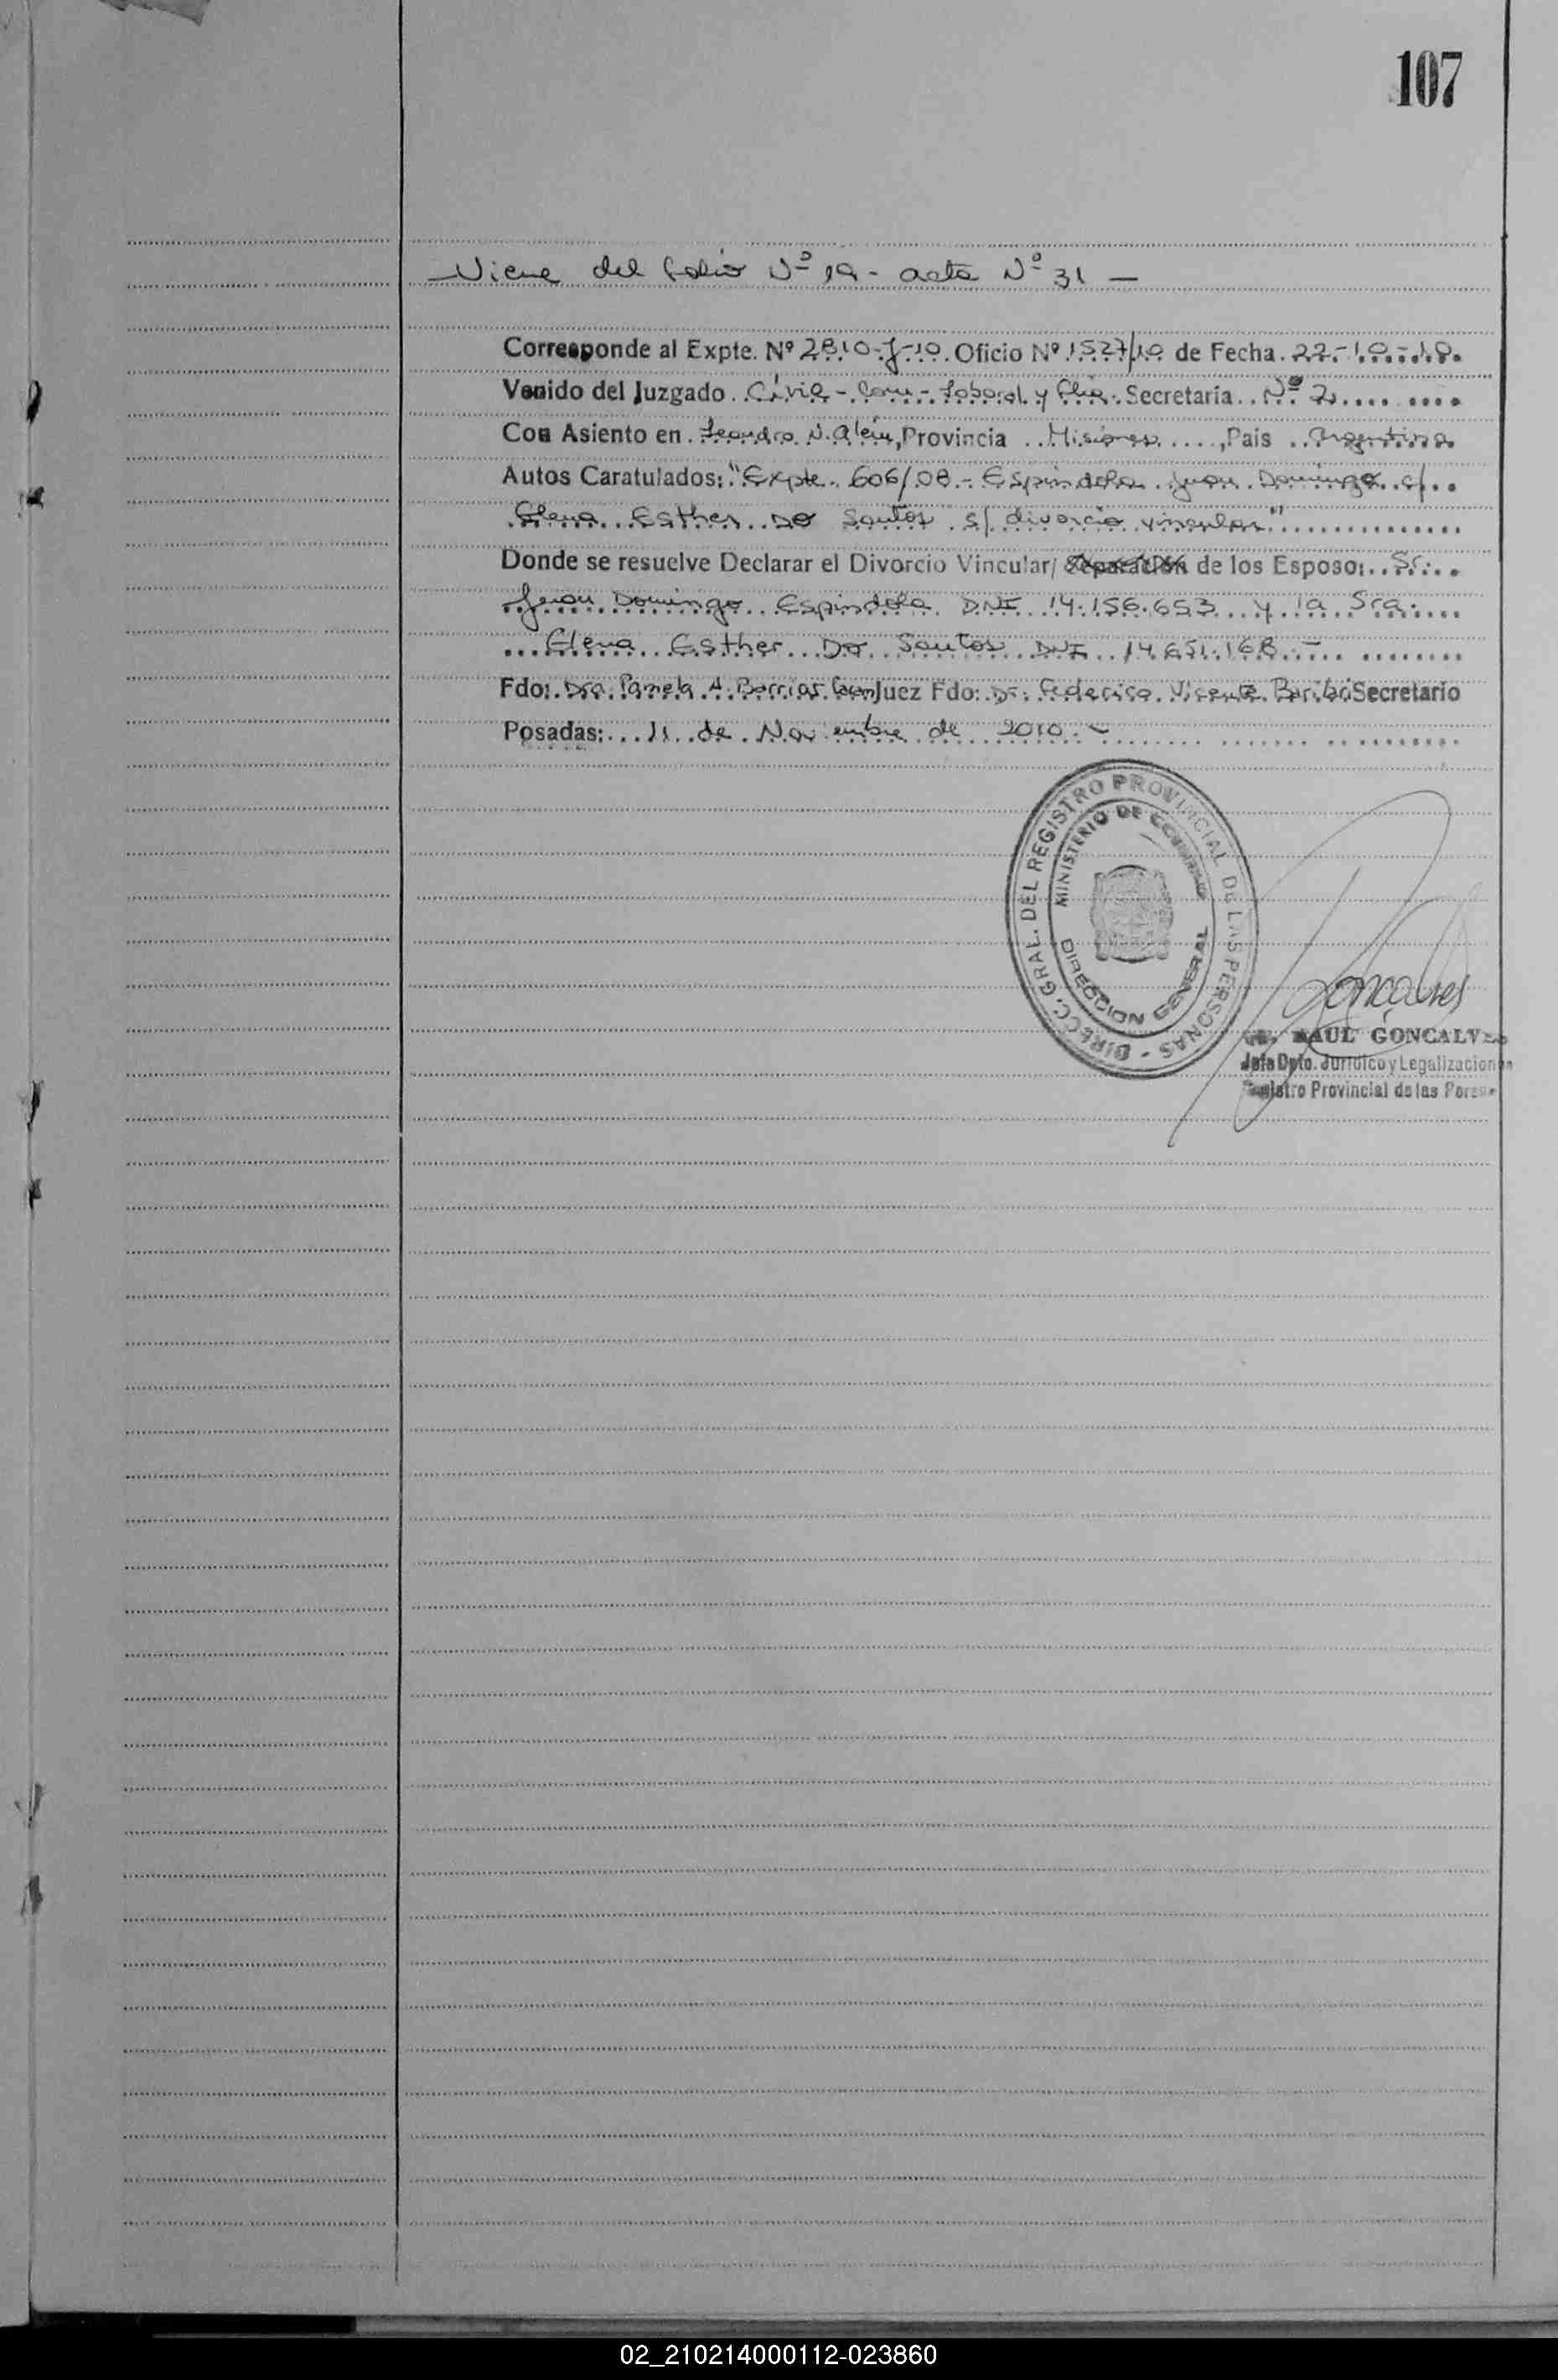 107
Viene del folio Nº 19 - acta Nº 31 -
Corresponde al Expte. Nº 2810-J-10. Oficio Nº 1527/10 de Fecha. 22-10-10.
Venido del Juzgado. Civil - Com - Laboral y Flia. Secretaría.. Nº 2
Con Asiento en. Leandro N. Alem, Provincia .. Misiones ...., País .. Argentina
Autos Caratulados: "Expte. 606/08.- Espindola Juan Domingo c/..
Elena Esther Do Santos s/ divorcio vincular"
Donde se resuelve Declarar el Divorcio Vincular/ Separación de los Esposo:.. Sr...
Juan Domingo Espindola DNI 14.156.653 y la Sra.
Elena Esther Do Santos DNI 14.651.168.-
Fdo:. Dra. Pamela A. Barrios Juez Fdo: Dr. Federico Vicente Secretario
Posadas:... 11 de Noviembre de 2010.-
DIRECC. GRAL. DEL REGISTRO PROVINCIAL DE LAS PERSONAS -
MINISTERIO DE GOBIERNO
DIRECCION GENERAL
Goncalves
RAUL GONCALVES
Jefe Dpto. Jurídico y Legalizaciones
Registro Provincial de las Personas
02_210214000112-023860